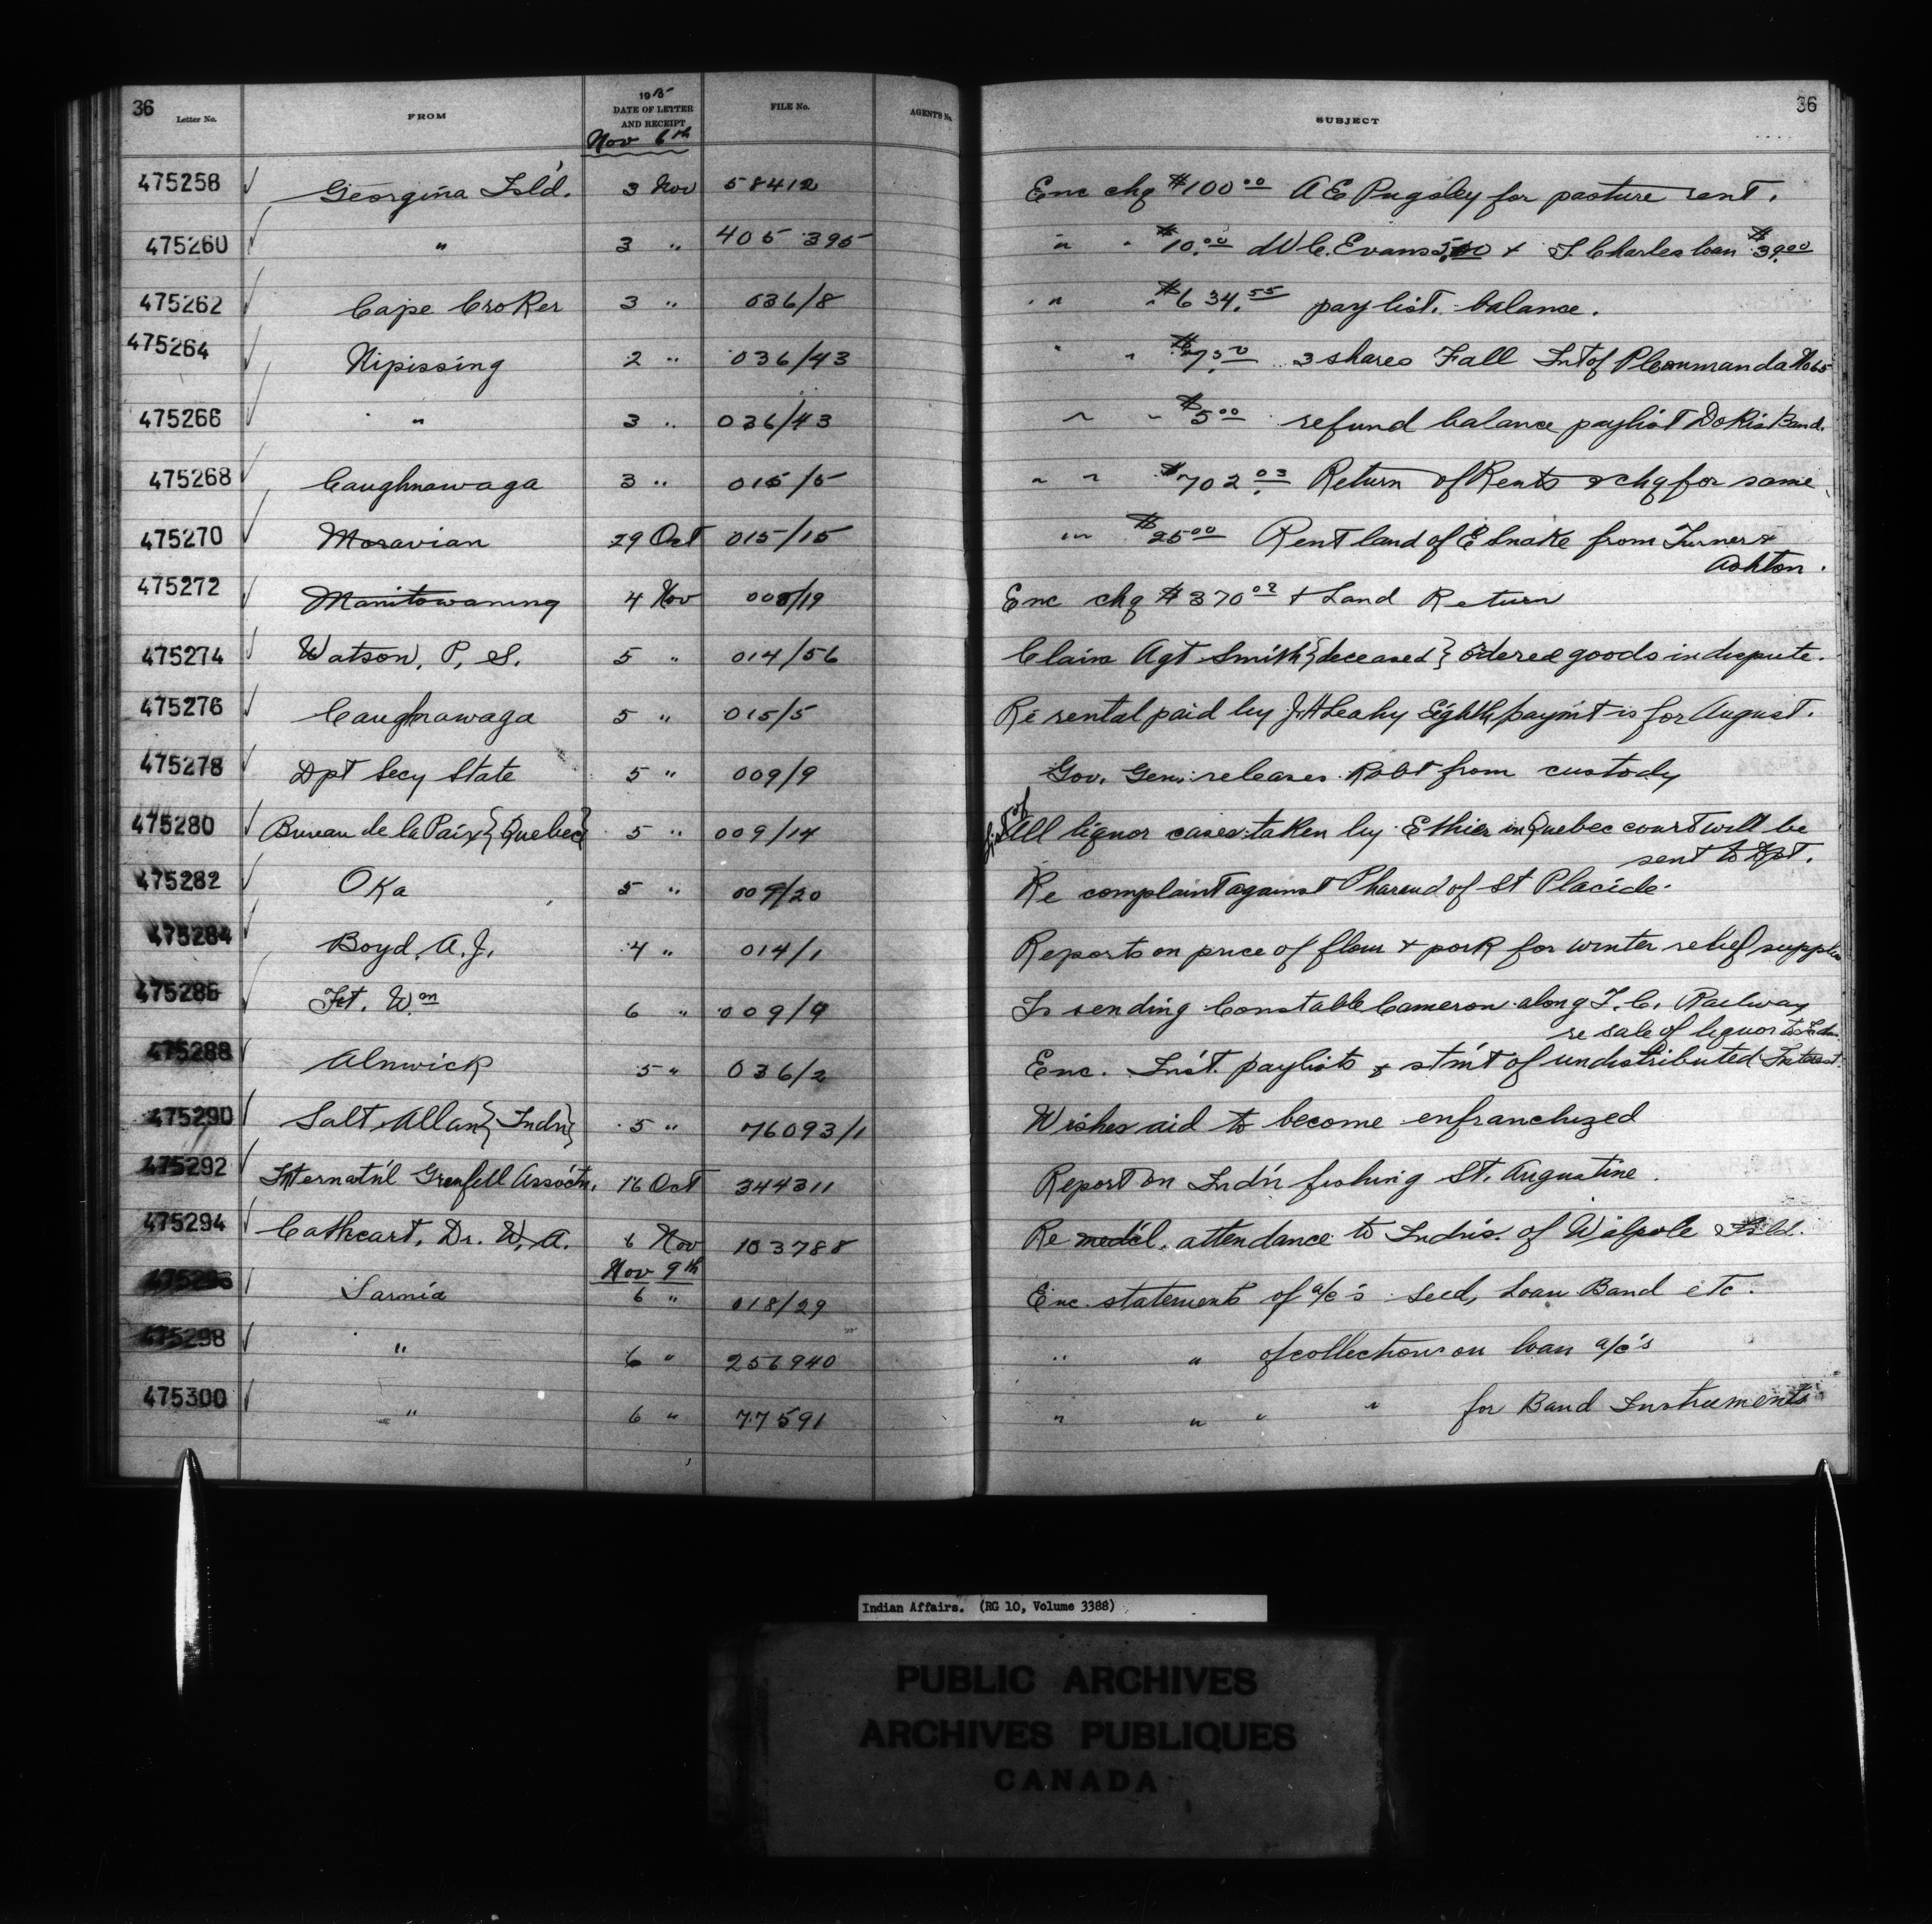 36 Letter No. FROM 1915 DATE OF LETTER AND RECEIPT FILE No. AGENT'S No. SUBJECT 36
Nov 6th
475258 Georgina Isl'd. 3 Nov 58412 Enc chq $100.00 A E Pugsley for pasture rent.
475260 " 3 " 405 395 " " $10.00 W C. Evans & J. Charles loan $39.00
475262 Cape Croker 3 " 036/8 " " $634.55 paylist. balance.
475264 Nipissing 2 " 036/43 " " 3 shares Fall Int of P Commanda No 65
475266 " 3 " 036/43 " " $5.00 refund balance paylist Dokis Band.
475268 Caughnawaga 3 " 015/5 " " $702.03 Return of Rents & chq for same
475270 Moravian 29 Oct 015/15 " " $25.00 Rent land of E Snake from Turner &
Ashton.
475272 Manitowaning 4 Nov 008/19 Enc chq $370.02 & Land Return
475274 Watson, P, S. 5 " 014/56 Claim Agt Smith {deceased} ordered goods in dispute.
475276 Caughnawaga 5 " 015/5 Re rental paid by J. H Leahy Eighth paym't is for August.
475278 Dpt Secy State 5 " 009/9 Gov. Gen. releases Robt from custody
475280 Bureau de la Paix {Quebec} 5 " 009/14 List of All liquor cases taken by Ethier in Quebec court will be
sent to Dpt.
475282 Oka 5 " 009/20 Re complaint against of St Placide.
475284 Boyd, A. J. 4 " 014/1 Reports on price of flour & pork for winter relief supplies
475286 Ft. Wm 6 " 009/9 Is sending Constable Cameron along T. C. Railway
re sale of liquor to Indns.
475288 Alnwick 5 " 036/2 Enc. Int. paylists & stm't of undistributed Interest.
475290 Salt, Allan {Indn} 5 " 76093/1 Wishes aid to become enfranchized
475292 Internat'nl Grenfell Assoc'tn. 16 Oct 344311 Report on Ind'n fishing St. Augustine.
475294 Cathcart, Dr. W. A. 6 Nov 103788 Re med'cl. attendance to Indn's. of Walpole Isld.
Nov 9th
475296 Sarnia 6 " 018/29 Enc. statements of a/c's Seed, Loan Band etc.
475298 " 6 " 256940 " " of collections on loan a/c's
475300 " 6 " 77591 " " " " for Band Instruments
Indian Affairs. (RG 10, Volume 3388)
PUBLIC ARCHIVES
ARCHIVES PUBLIQUES
CANADA